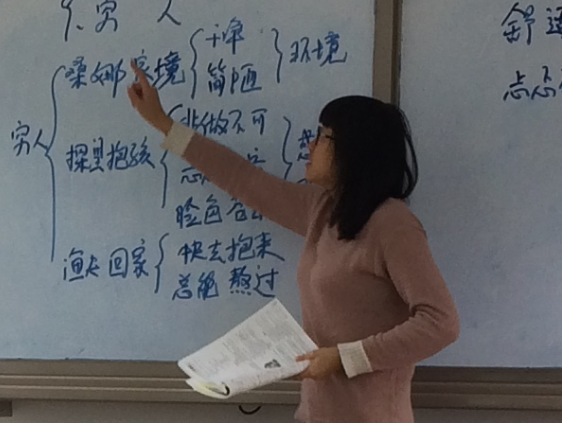 穷人
舒
忐忑
穷人
桑娜家境
干净
简陋
环境
探望抱孩
非做不可
忐
脸色苍
渔夫回家
快去抱来
总能熬过